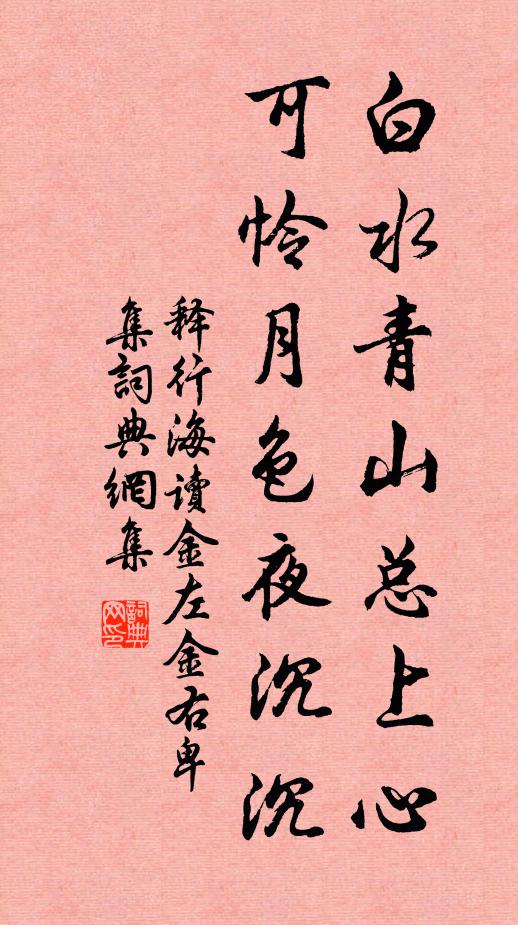 白水青山总上心
可怜月色夜沉沉
释行海读金左金右卑
集詞典網集
詞典网印